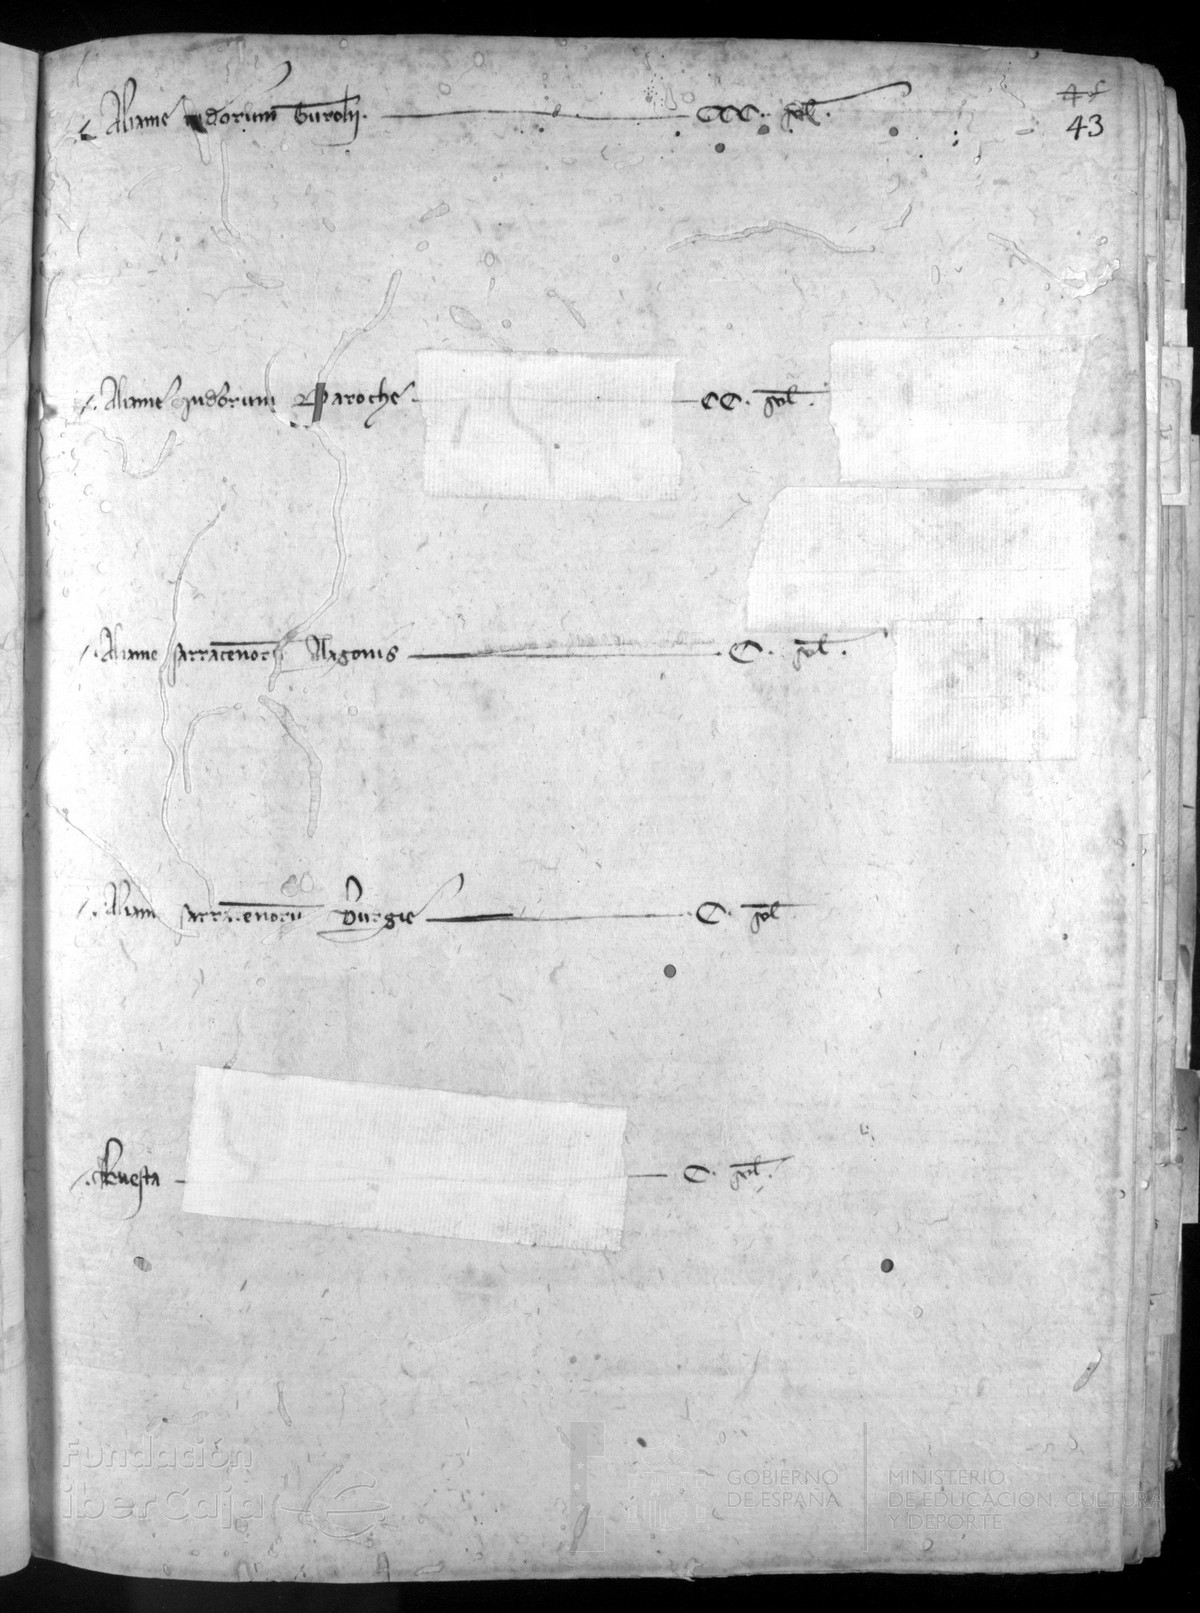 Aliame judorum Turolij. CCC. sol.
43
Aliame judorum Daroche. CC. sol.
Aliame sarracenorum Alagonis C. sol.
Aliam sarracenorum Burgie C. sol
Ruesta C. sol.
Fundación
iberCaja
GOBIERNO
DE ESPAÑA
MINISTERIO
DE EDUCACIÓN, CULTURA
Y DEPORTE